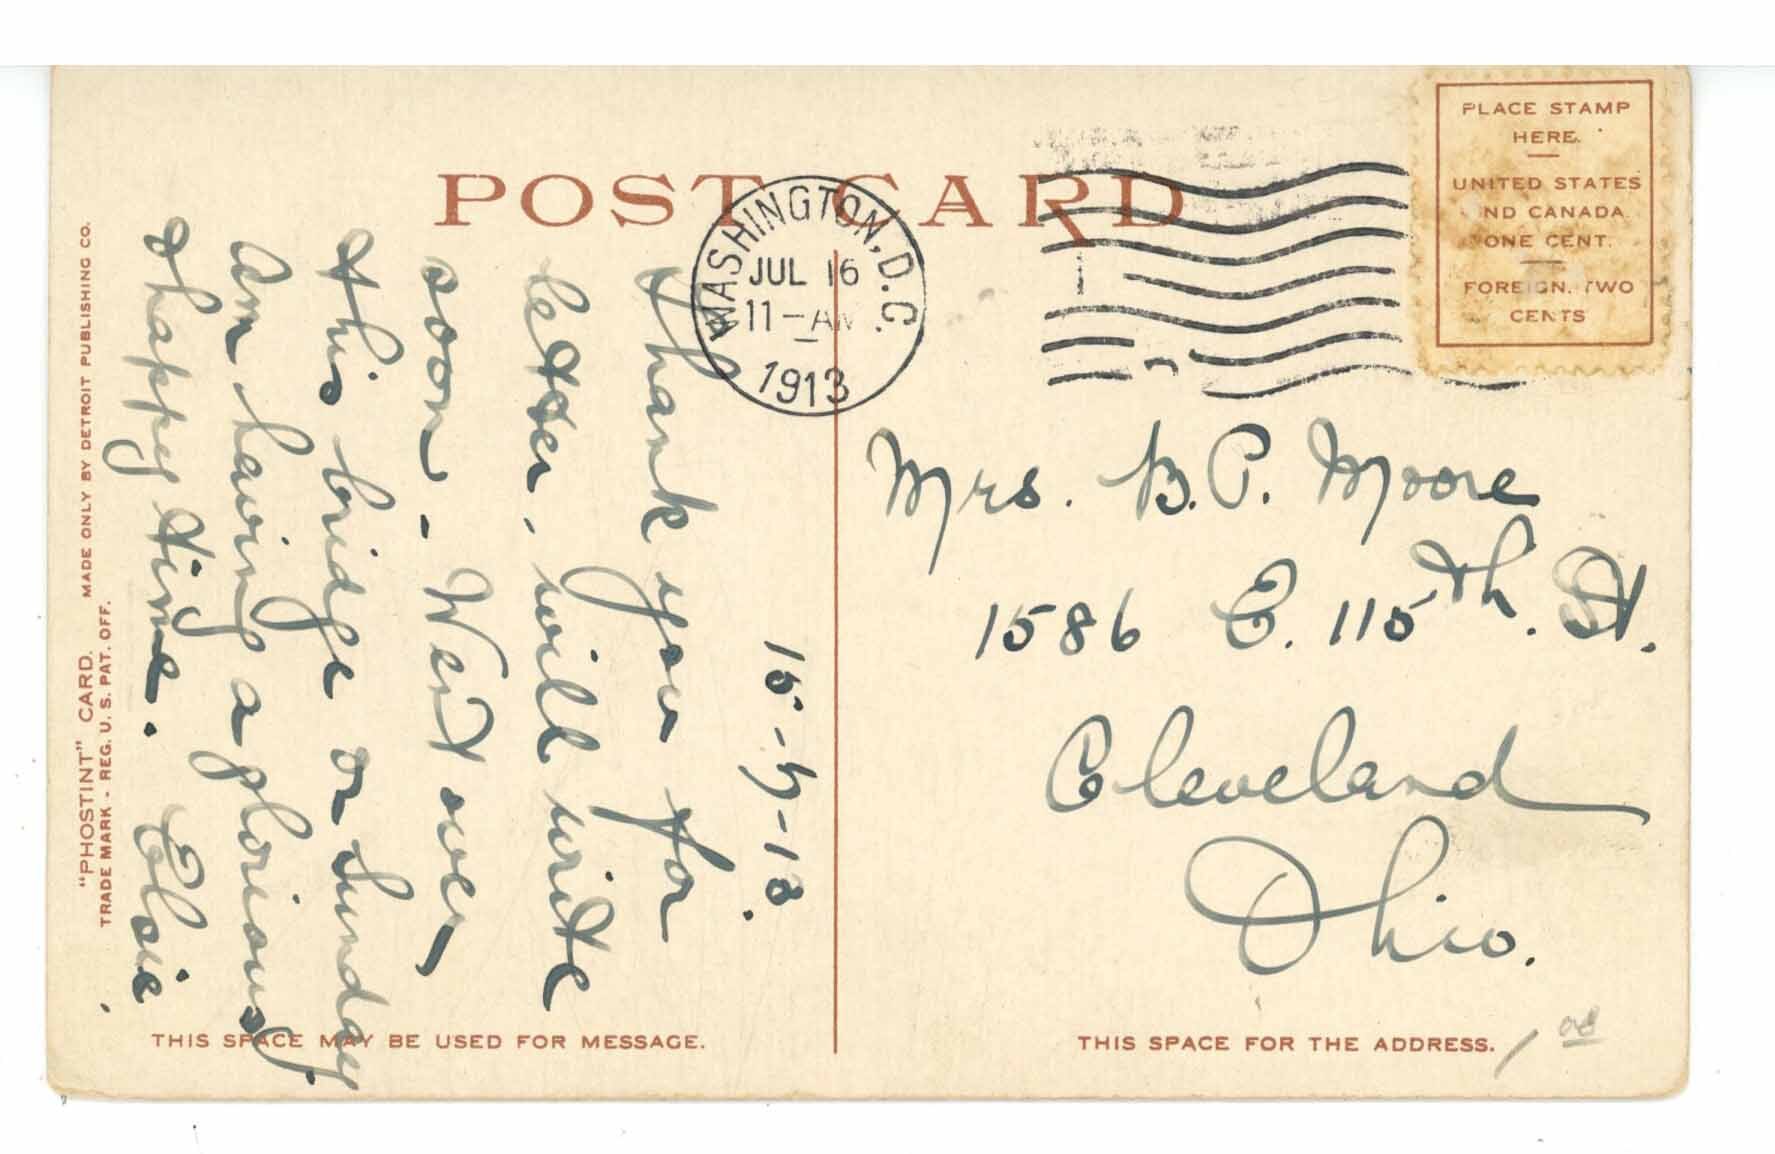 POST CARD
WASHINGTON, D.C.
JUL 16
11-AM
1913
PLACE STAMP
HERE.
UNITED STATES
ND CANADA
ONE CENT.
FOREIGN. TWO
CENTS
15-7-13.
Thank you for
letter, will write
soon. Went over
this bridge on Sunday
Am having a glorious,
happy time. Elsie
Mrs. B. P. Moore
1586 E. 115th. St.
Cleveland
Ohio.
"PHOSTINT" CARD. MADE ONLY BY DETROIT PUBLISHING CO.
TRADE MARK - REG. U. S. PAT. OFF.
THIS SPACE MAY BE USED FOR MESSAGE.
THIS SPACE FOR THE ADDRESS.